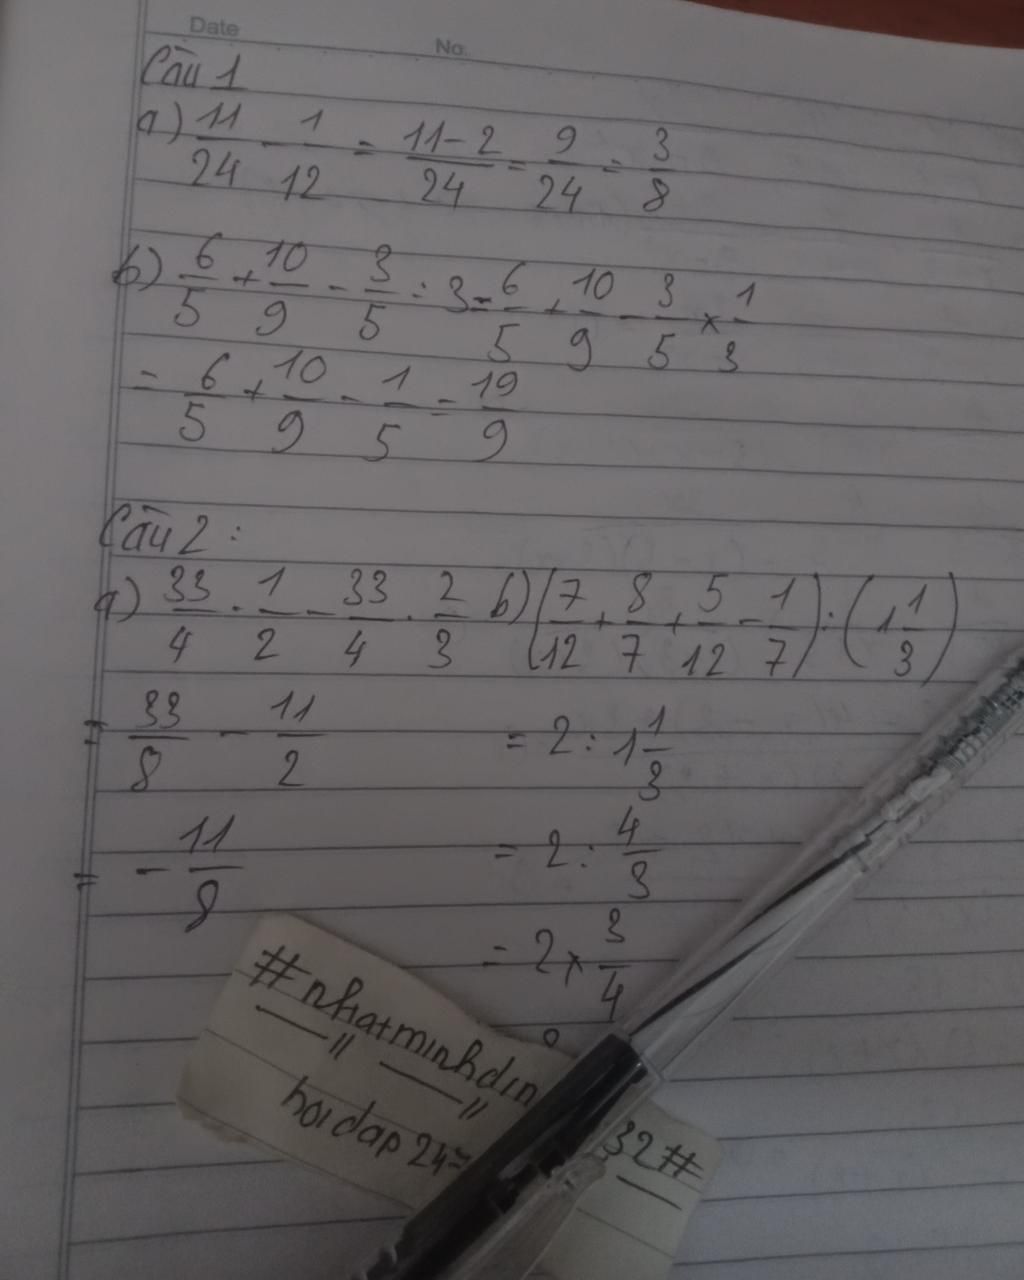 Date No.
Câu 1
a) 11/24 - 1/12 = (11-2)/24 = 9/24 = 3/8
b) 6/5 + 10/9 - 3/5 : 3 = 6/5 + 10/9 - 3/5 × 1/3
= 6/5 + 10/9 - 1/5 = 19/9
Câu 2 :
a) 33/4 . 1/2 - 33/4 . 2/3 b) (7/12 + 8/7 + 5/12 - 1/7) : (1 1/3)
= 33/8 - 11/2 = 2 : 1 1/3
= - 11/8 = 2 : 4/3
= 2 × 3/4
#nhatminhdin 32#
hoidap 247